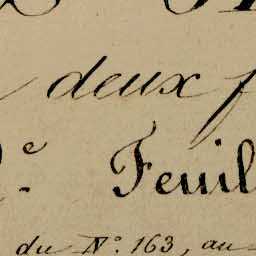 deux f
e Feuil
du N°. 163, au